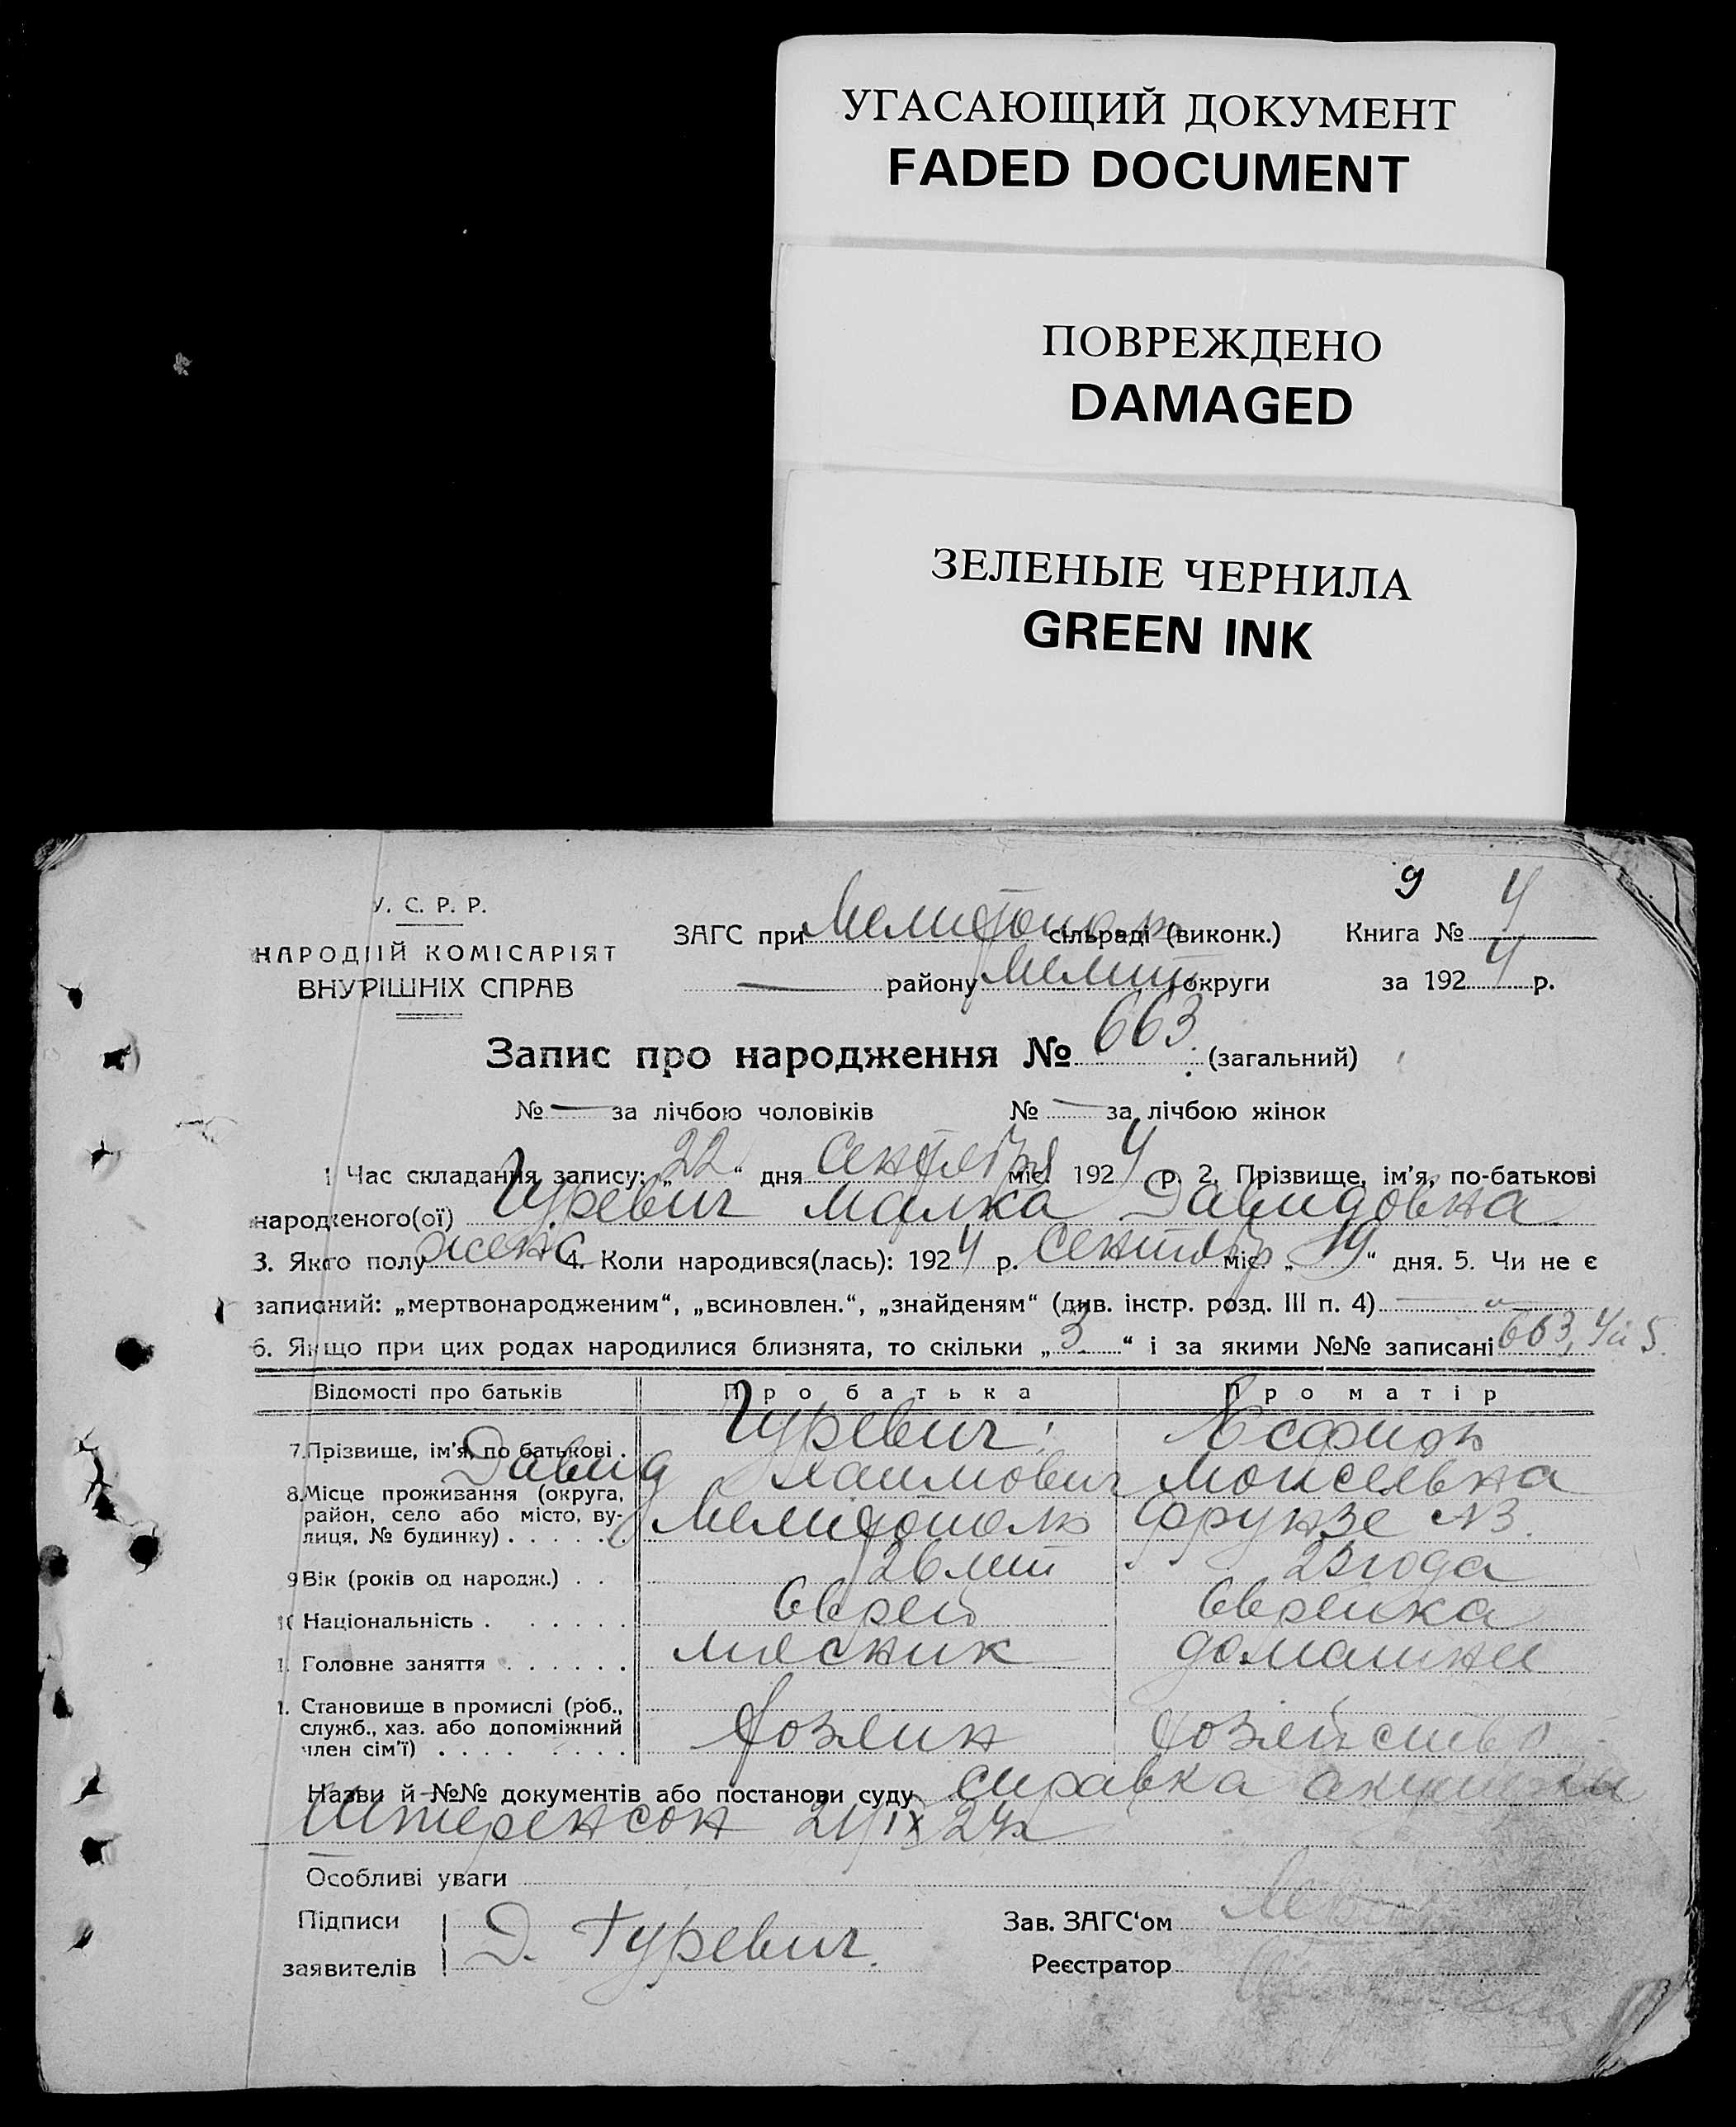 УГАСАЮЩИЙ ДОКУМЕНТ
FADED DOCUMENT
ПОВРЕЖДЕНО
DAMAGED
ЗЕЛЕНЫЕ ЧЕРНИЛА
GREEN INK
9
У. С. Р. Р.
НАРОДНІЙ КОМІСАРІЯТ
ВНУТРІШНІХ СПРАВ
ЗАГС при сільраді (виконк.) Книга № 4
— району Мелит округи за 1924 р.
Запис про народження № 663. (загальний)
№ — за лічбою чоловіків № — за лічбою жінок
1 Час складання запису: „22“ дня Сентября міс. 1924 р. 2. Прізвище, ім’я, по-батькові
народженого(ої) Гуревич Малка Давидовна
3. Якого полу женс 4. Коли народився(лась): 1924 р. Сентябр міс. „19“ дня. 5. Чи не є
записаний: „мертвонародженим“, „всиновлен.“, „знайденям“ (див. інстр. розд. III п. 4) —„—
6. Якщо при цих родах народилися близнята, то скільки „3“ і за якими №№ записані 663, 4 и 5.
Відомості про батьків Про батька Про матір
7. Прізвище, ім’я, по батькові . Гуревич
Давид Хаимович Моисеевна
8. Місце проживання (округа, район, село або місто, ву-
лиця, № будинку) . . . . . . Мелитополь Фрунзе №3.
9 Вік (років од народж.) . . 26 лет 23 года
10 Національність . . . . . . Еврей Еврейка
1. Головне заняття . . . . . . мясник домашнее
1. Становище в промислі (роб.,
служб., хаз. або допоміжний
член сім’ї) . . . . . . . . Хозяин хозяйство
Назви й №№ документів або постанови суду Справка акушерки
Штеренсон 21/IX 24г
Особливі уваги
Підписи
заявителів Д. Гуревич.
Зав. ЗАГС‘ом
Реєстратор